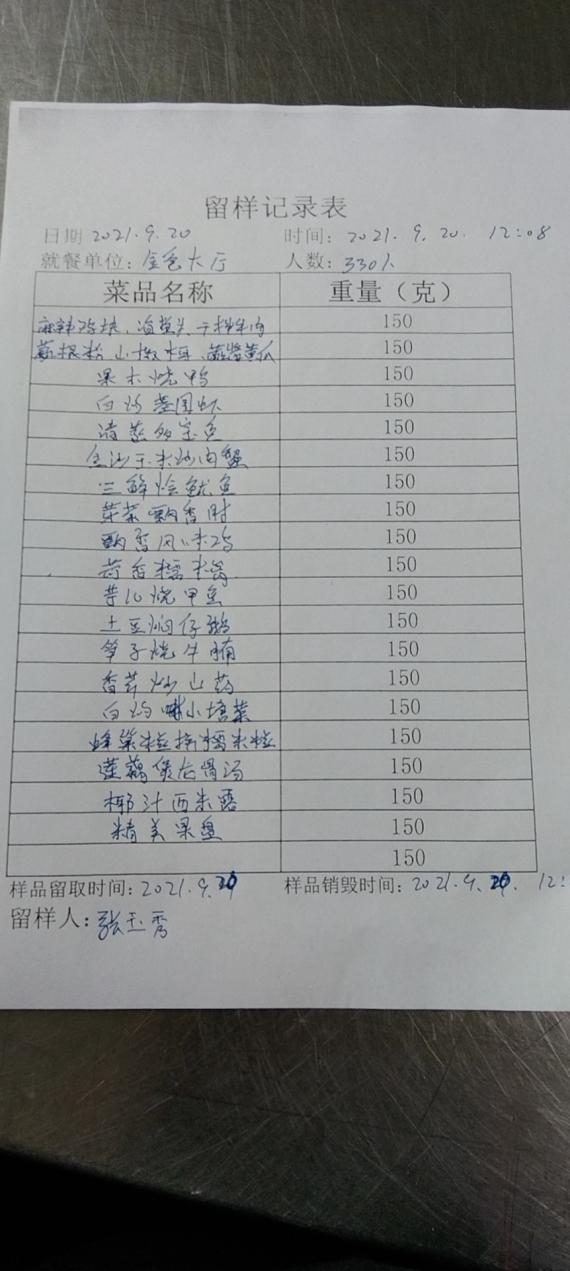 留样记录表
日期 2021.9.20 时间: 2021.9.20. 12:08
就餐单位: 金色大厅 人数: 330人
菜品名称 重量（克）
麻辣鸡块、 干拌牛肉 150
蕨根粉 山椒木耳 黄瓜 150
果木烧鸭 150
白灼基围虾 150
清蒸多宝鱼 150
金沙玉米炒肉蟹 150
三鲜烩鱿鱼 150
芽菜飘香肘 150
飘香风味鸡 150
荷香糯米 150
芋儿烧甲鱼 150
土豆焖仔鹅 150
笋子烧牛腩 150
香芹炒山药 150
白灼 小塘菜 150
蜂巢 糯米粒 150
莲藕煲龙骨汤 150
椰汁西米露 150
精美果盘 150
150
样品留取时间: 2021.9.20 样品销毁时间: 2021.9. 12:
留样人: 张玉秀